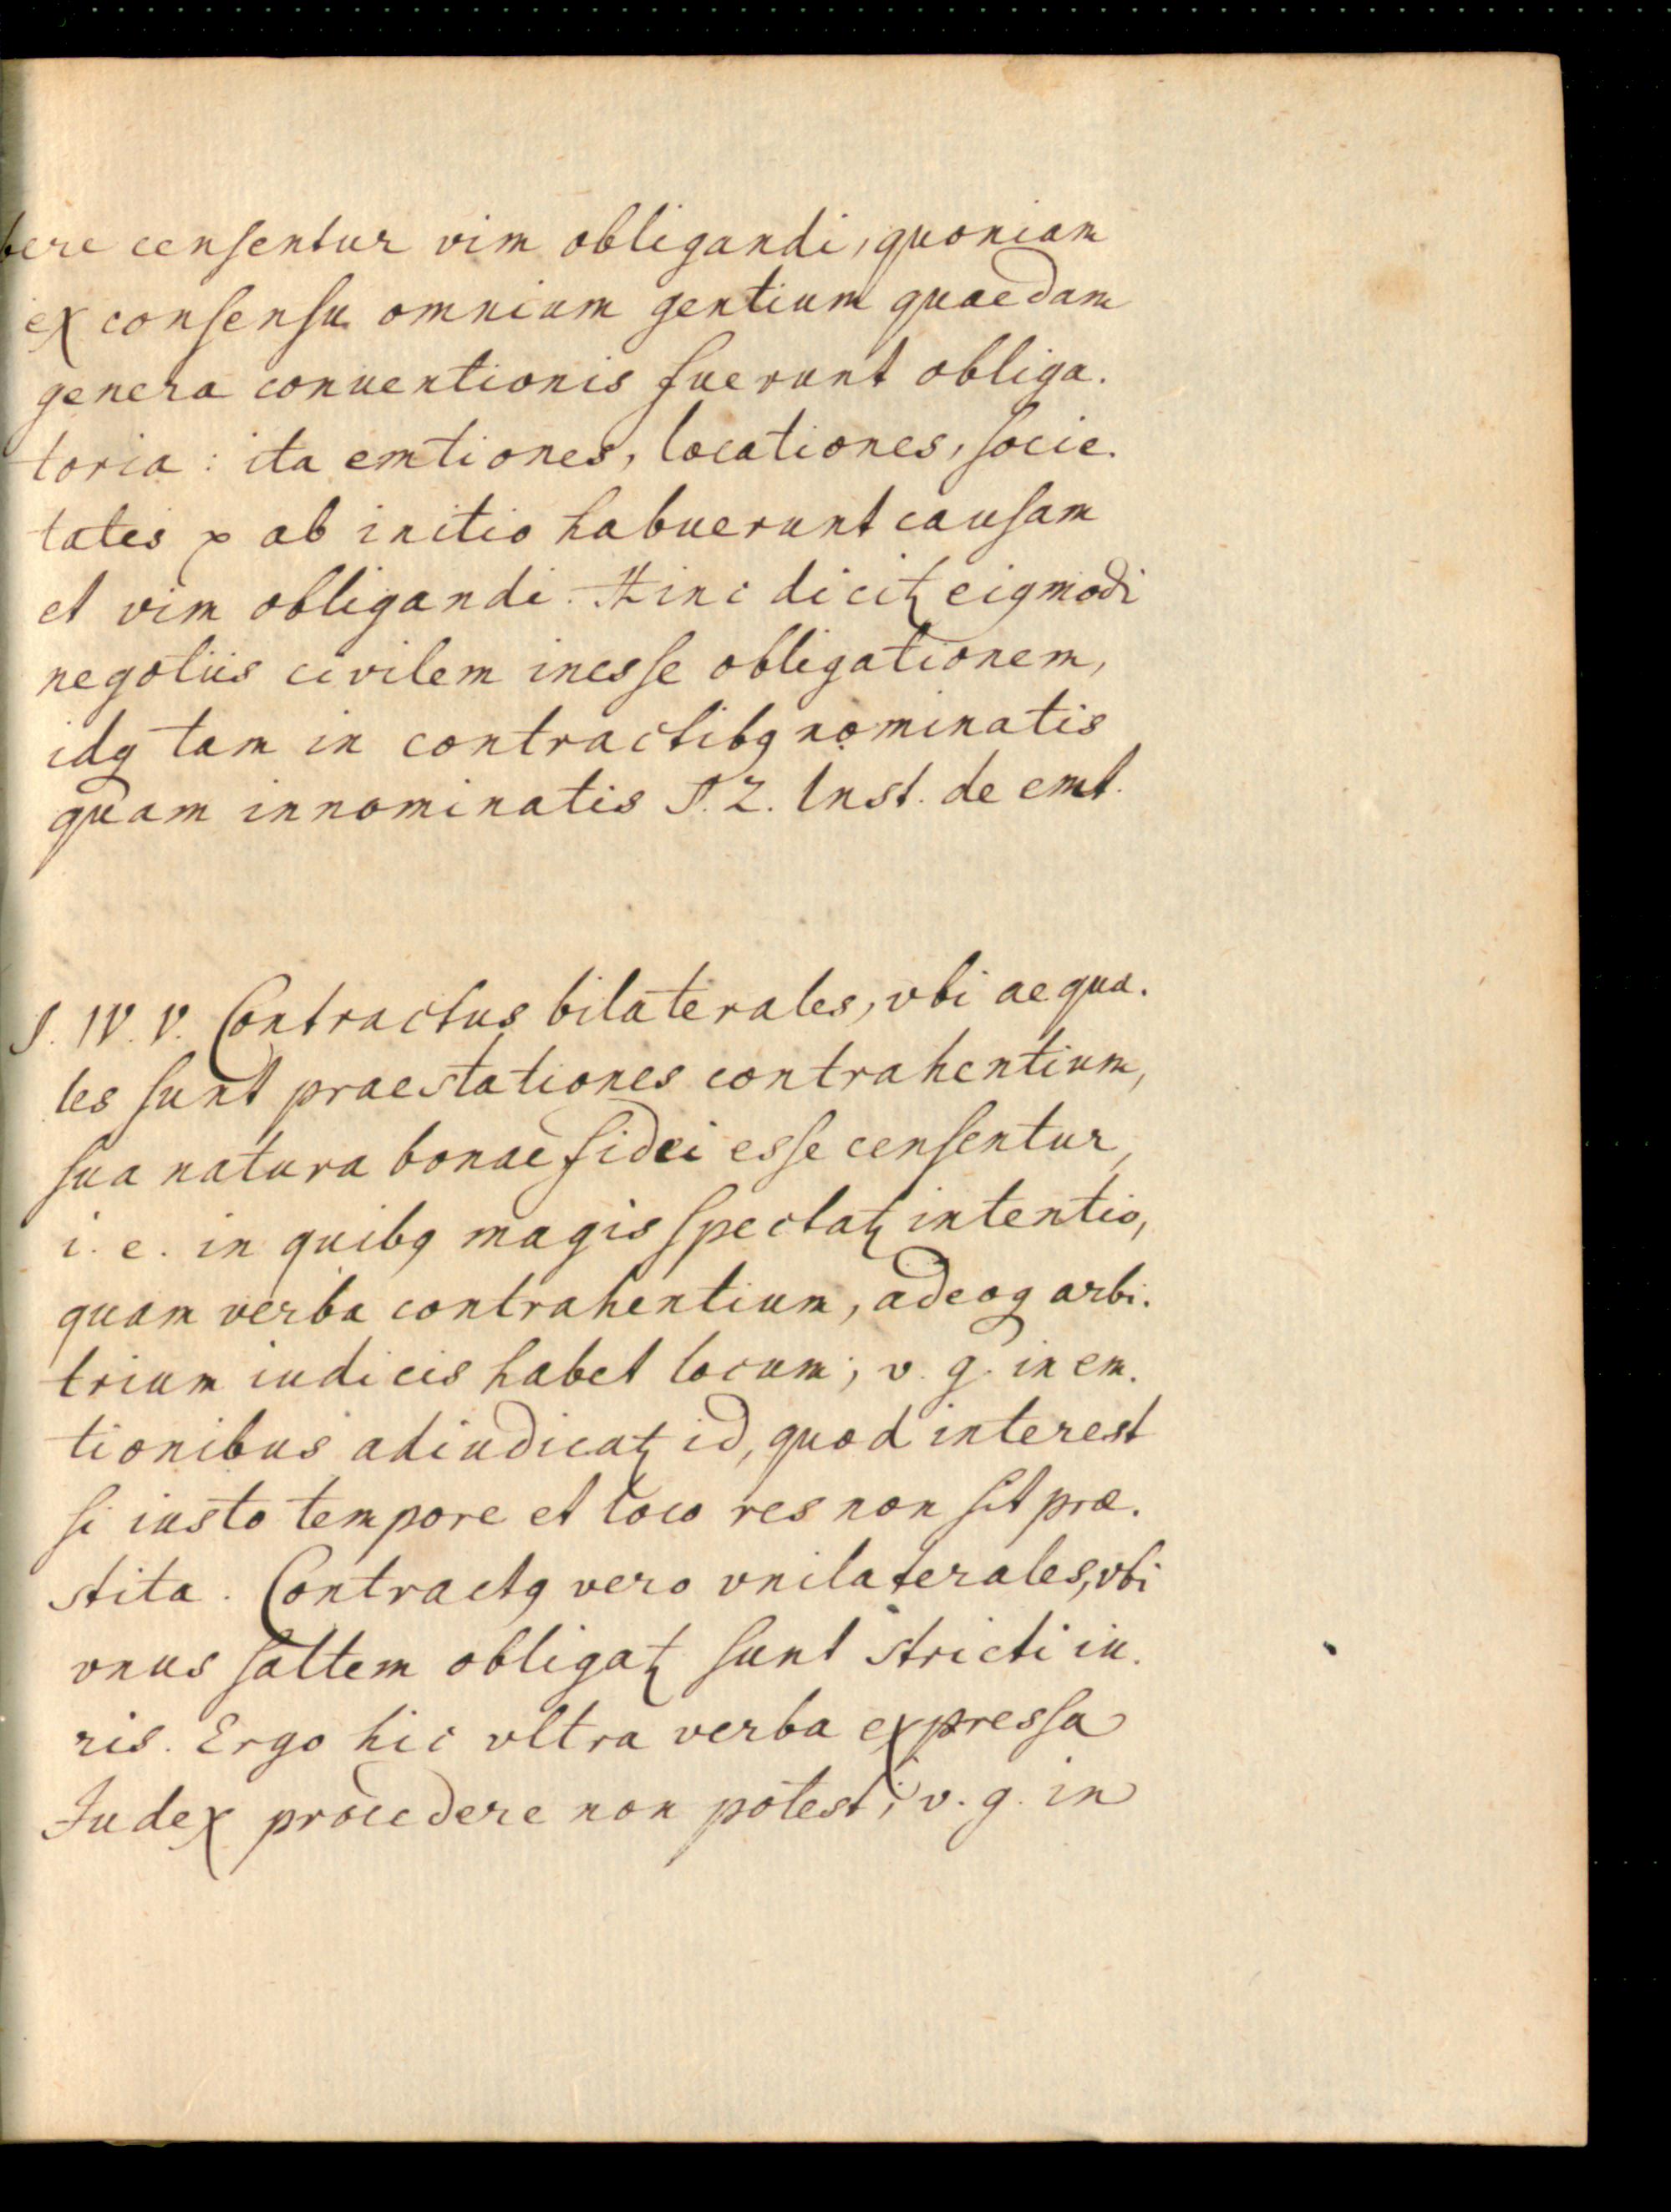 bere censentur vim obligandi, quoniam
ex consensu omnium gentium quaedam
genera conuentionis fuerunt obliga.
toria: ita emtiones, locationes, socie.
tates ꝛc ab initio habuerunt causam
et vim obligandi. Hinc dicitꝛ eiqmodi
negotiis civilem inesse obligationem,
idq tam in contractibq nominatis
quam innominatis §. 2. Inst. de emt.
§. IV. V. Contractus bilaterales, vbi aequa.
les sunt praestationes contrahentium,
sua natura bonae fidei esse censentur,
i. e. in quibq magis spectatꝛ intentio,
quam verba contrahentium, adeoq arbi.
trium iudicis habet locum; v. g. in em.
tionibus adiudicatꝛ id, quod interest
si iusto tempore et loco res non sit præ.
stita. Contractq vero vnilaterales, vbi
vnus saltem obligatꝛ sunt stricti iu.
ris. Ergo hic vltra verba expressa
Judex procedere non potest; v. g. in